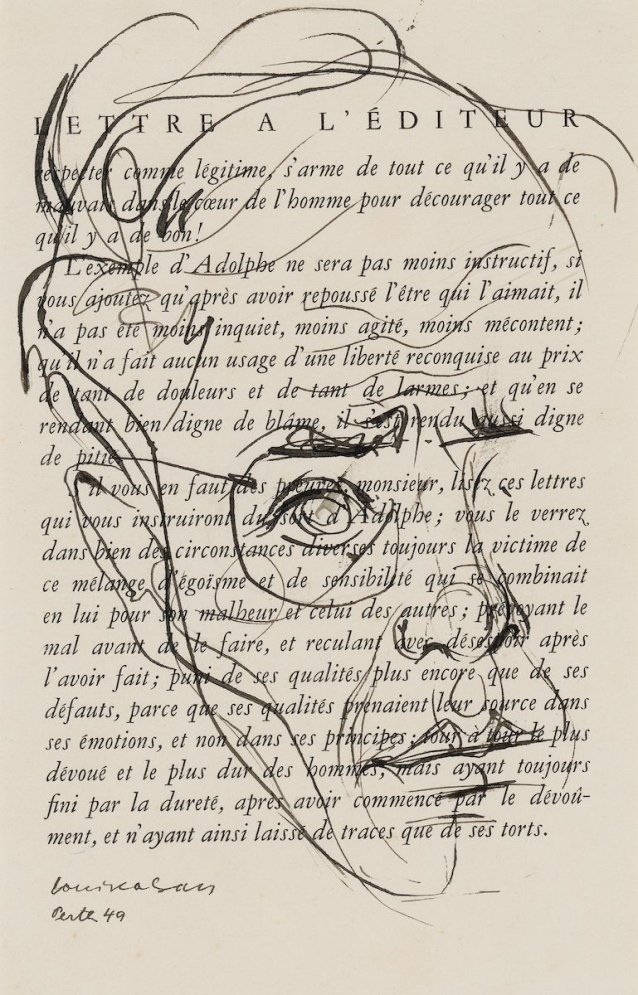 LETTRE A L'ÉDITEUR
respecter comme légitime, s'arme de tout ce qu'il y a de
mauvais dans le cœur de l'homme pour décourager tout ce
qu'il y a de bon!
L'exemple d'Adolphe ne sera pas moins instructif, si
vous ajoutez qu'après avoir repoussé l'être qui l'aimait, il
n'a pas été moins inquiet, moins agité, moins mécontent;
qu'il n'a fait aucun usage d'une liberté reconquise au prix
de tant de douleurs et de tant de larmes; et qu'en se
rendant bien digne de blâme, il s'est rendu aussi digne
de pitié
S'il vous en faut des preuves, monsieur, lisez ces lettres
qui vous instruiront du sort d'Adolphe; vous le verrez
dans bien des circonstances diverses toujours la victime de
ce mélange d'égoïsme et de sensibilité qui se combinait
en lui pour son malheur et celui des autres; prévoyant le
mal avant de le faire, et reculant avec désespoir après
l'avoir fait; puni de ses qualités plus encore que de ses
défauts, parce que ses qualités prenaient leur source dans
ses émotions, et non dans ses principes; tour à tour le plus
dévoué et le plus dur des hommes, mais ayant toujours
fini par la dureté, après avoir commencé par le dévoû-
ment, et n'ayant ainsi laissé de traces que de ses torts.
49